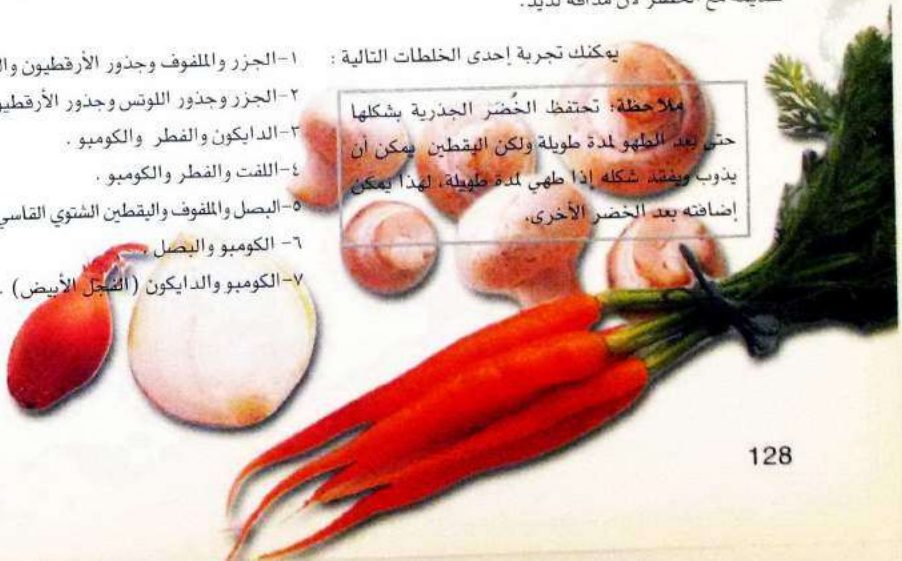 يمكنك تجربة إحدى الخلطات التالية :
ملاحظة: تحتفظ الخُضَر الجذرية بشكلها
حتى بعد الطهو لمدة طويلة ولكن اليقطين يمكن أن
يذوب ويفقد شكله إذا طهي لمدة طويلة، لهذا يمكن
إضافته بعد الخضر الأخرى.
١-الجزر والملفوف وجذور الأرقطيون
٢-الجزر وجذور اللوتس وجذور
٣-الدايكون والفطر والكومبو .
٤-اللفت والفطر والكومبو .
٥-البصل والملفوف واليقطين الشتوي القاسي
٦- الكومبو والبصل .
٧-الكومبو والدايكون (الفجل الأبيض) .
128